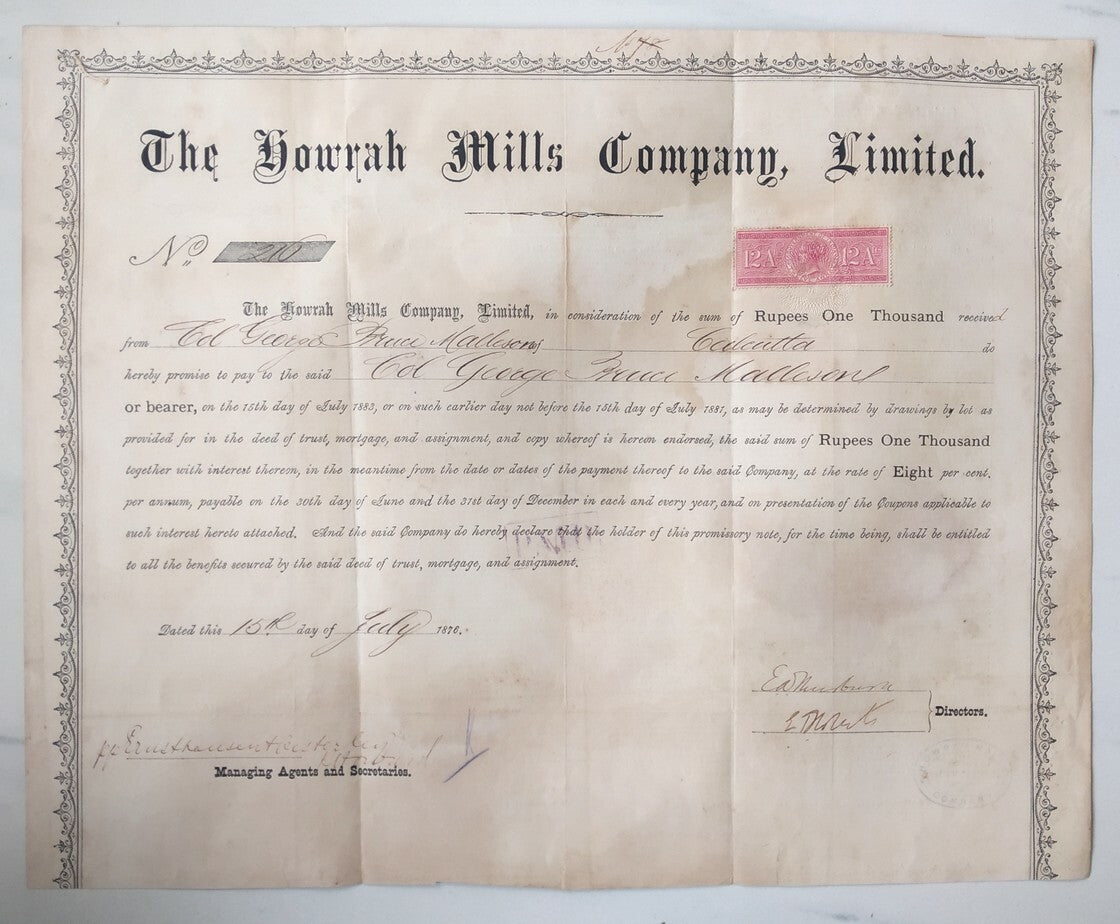 The Howrah Mills Company, Limited.
No. 210
12 A 12 A
The Howrah Mills Company, Limited, in consideration of the sum of Rupees One Thousand received
from Col George Bruce Malleson of Calcutta do
hereby promise to pay to the said Col George Bruce Malleson
or bearer, on the 15th day of July 1883, or on such earlier day not before the 15th day of July 1881, as may be determined by drawings by lot as
provided for in the deed of trust, mortgage, and assignment, and copy whereof is hereon endorsed, the said sum of Rupees One Thousand
together with interest thereon, in the meantime from the date or dates of the payment thereof to the said Company, at the rate of Eight per cent.
per annum, payable on the 30th day of June and the 31st day of December in each and every year, and on presentation of the Coupons applicable to
such interest hereto attached. And the said Company do hereby declare that the holder of this promissory note, for the time being, shall be entitled
to all the benefits secured by the said deed of trust, mortgage, and assignment.
Dated this 15th day of July 1876.
Directors.
Managing Agents and Secretaries.